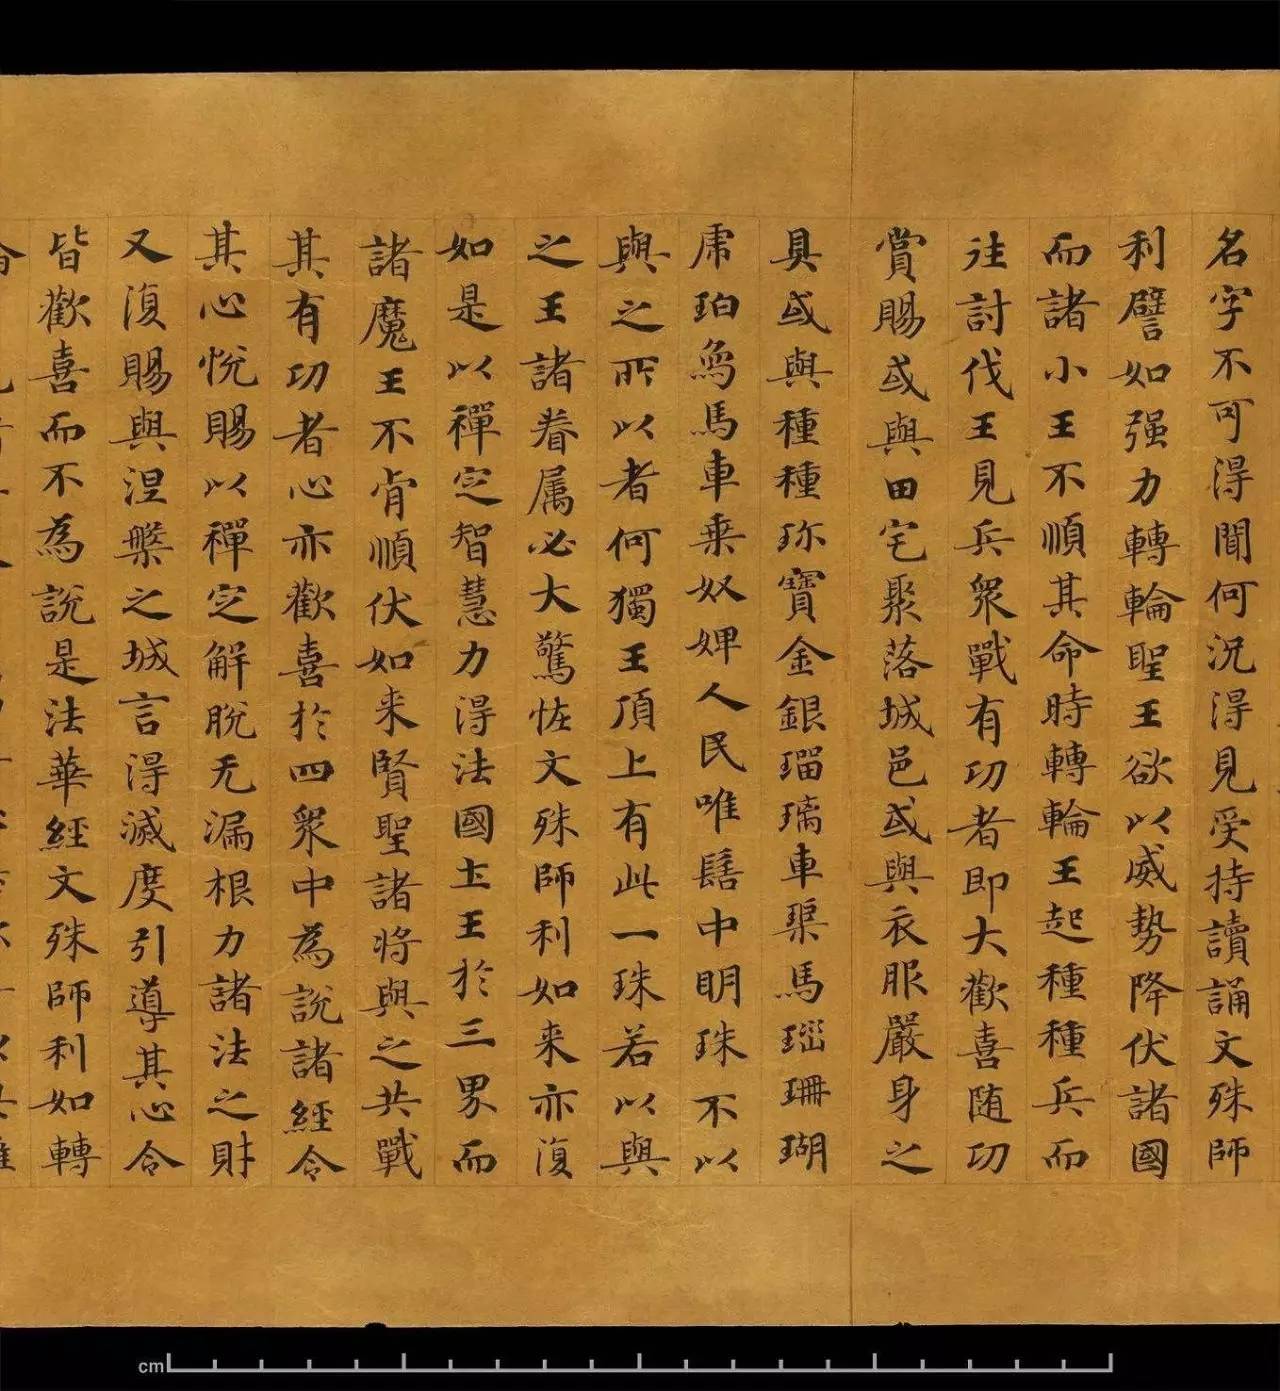 名字不可得聞何況得見受持讀誦文殊師
利譬如强力轉輪聖王欲以威勢降伏諸國
而諸小王不順其命時轉輪王起種種兵而
往討伐王見兵眾戰有功者即大歡喜随功
賞賜或與田宅聚落城邑或與衣服嚴身之
具或與種種珎寶金銀瑠璃車𤦲馬瑙珊瑚
虎珀為馬車乗奴婢人民唯髻中明珠不以
與之所以者何獨王頂上有此一珠若以與
之王諸眷属必大驚恠文殊師利如来亦復
如是以禪定智慧力得法國土王於三界而
諸魔王不肯順伏如来賢聖諸将與之共戰
其有功者心亦歡喜於四眾中為說諸經令
其心悅賜以禪定解脫无漏根力諸法之財
又復賜與涅槃之城言得滅度引導其心令
皆歡喜而不為說是法華經文殊師利如轉
cm